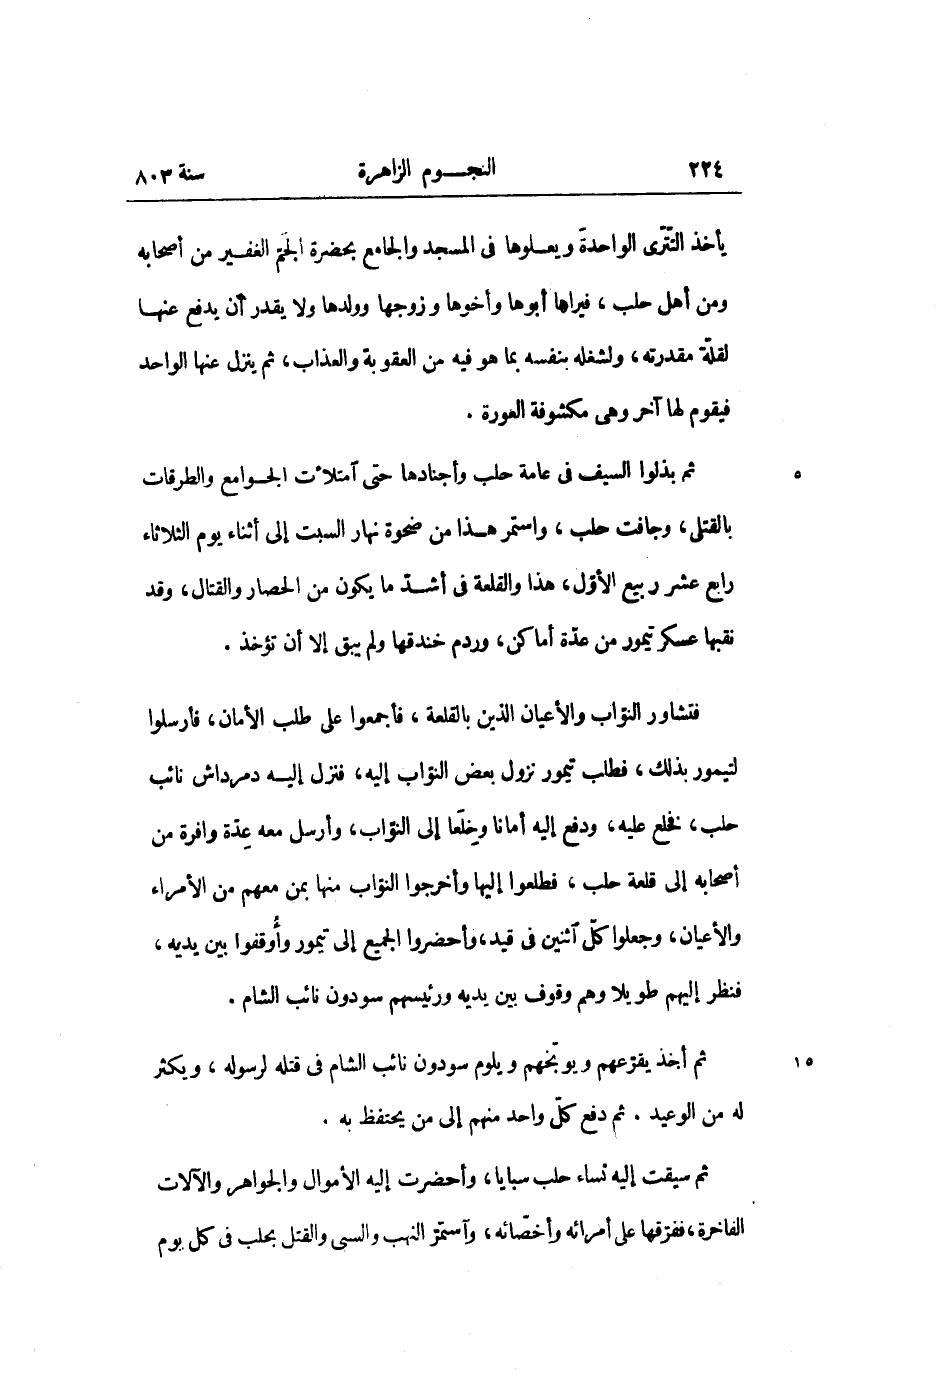 ٢٢٤ النجـــوم الزاهرة سنة ٨٠٣
يأخذ التّترى الواحدةَ ويعـلوها فى المسجد والجامع بحضرة الجَمّ الغفـير من أصحابه
ومن أهل حلب ، فيراها أبوها وأخوها وزوجها وولدها ولا يقدر أن يدفع عنهـا
لقلّة مقدرته، ولشغله بنفسه بما هو فيه من العقوبة والعذاب، ثم ينزل عنها الواحد
فيقوم لها آخر وهى مكشوفة العورة .
٥ ثم بذلوا السيف فى عامة حلب وأجنادها حتى آمتلأت الجـوامع والطرقات
بالقتلى، وجافت حلب ، واستمر هـذا من ضحوة نهار السبت إلى أثناء يوم الثلاثاء
رابع عشر ربيع الأوّل، هذا والقلعة فى أشـدّ ما يكون من الحصار والقتال، وقد
نقبها عسكر تيمور من عدّة أماكن، وردم خندقها ولم يبق إلا أن تؤخذ .
فتشاور النوّاب والأعيان الذين بالقلعة ، فأجمعوا على طلب الأمان، فأرسلوا
لتيمور بذلك ، فطلب تيمور نزول بعض النوّاب إليه، فنزل إليـه دمرداش نائب
حلب، فخلع عليه، ودفع إليه أمانا وخِلَعا إلى النوّاب، وأرسل معه عِدّة وافرة من
أصحابه إلى قلعة حلب ، فطلعوا إليها وأخرجوا النوّاب منها بمن معهم من الأمراء
والأعيان، وجعلوا كلّ آثنين فى قيد،وأحضروا الجميع إلى تيمور وأُوقفوا بين يديه ،
فنظر إليهم طويلا وهم وقوف بين يديه ورئيسهم سودون نائب الشام .
١٥ ثم أخذ يقرّعهم ويوبّخهم ويلوم سودون نائب الشام فى قتله لرسوله ، ويكثر
له من الوعيد . ثم دفع كلّ واحد منهم إلى من يحتفظ به .
ثم سيقت إليه نساء حلب سبايا، وأحضرت إليه الأموال والجواهر والآلات
الفاخرة،ففرّقها على أمرائه وأخصّائه، وآستمرّ النهب والسبى والقتل بحلب فى كل يوم